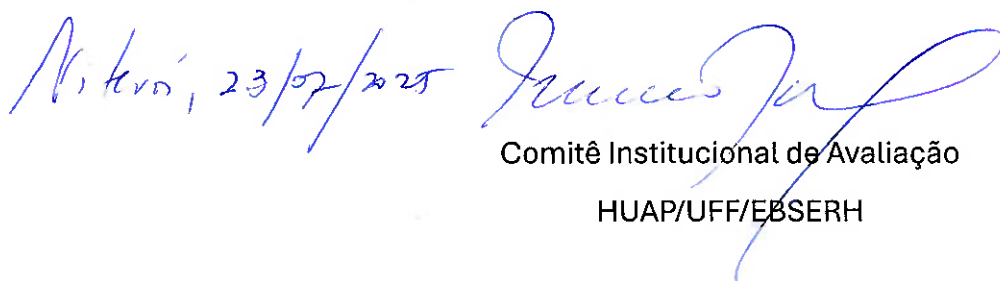 Niterói, 23/07/2025
Comitê Institucional de Avaliação
HUAP/UFF/EBSERH